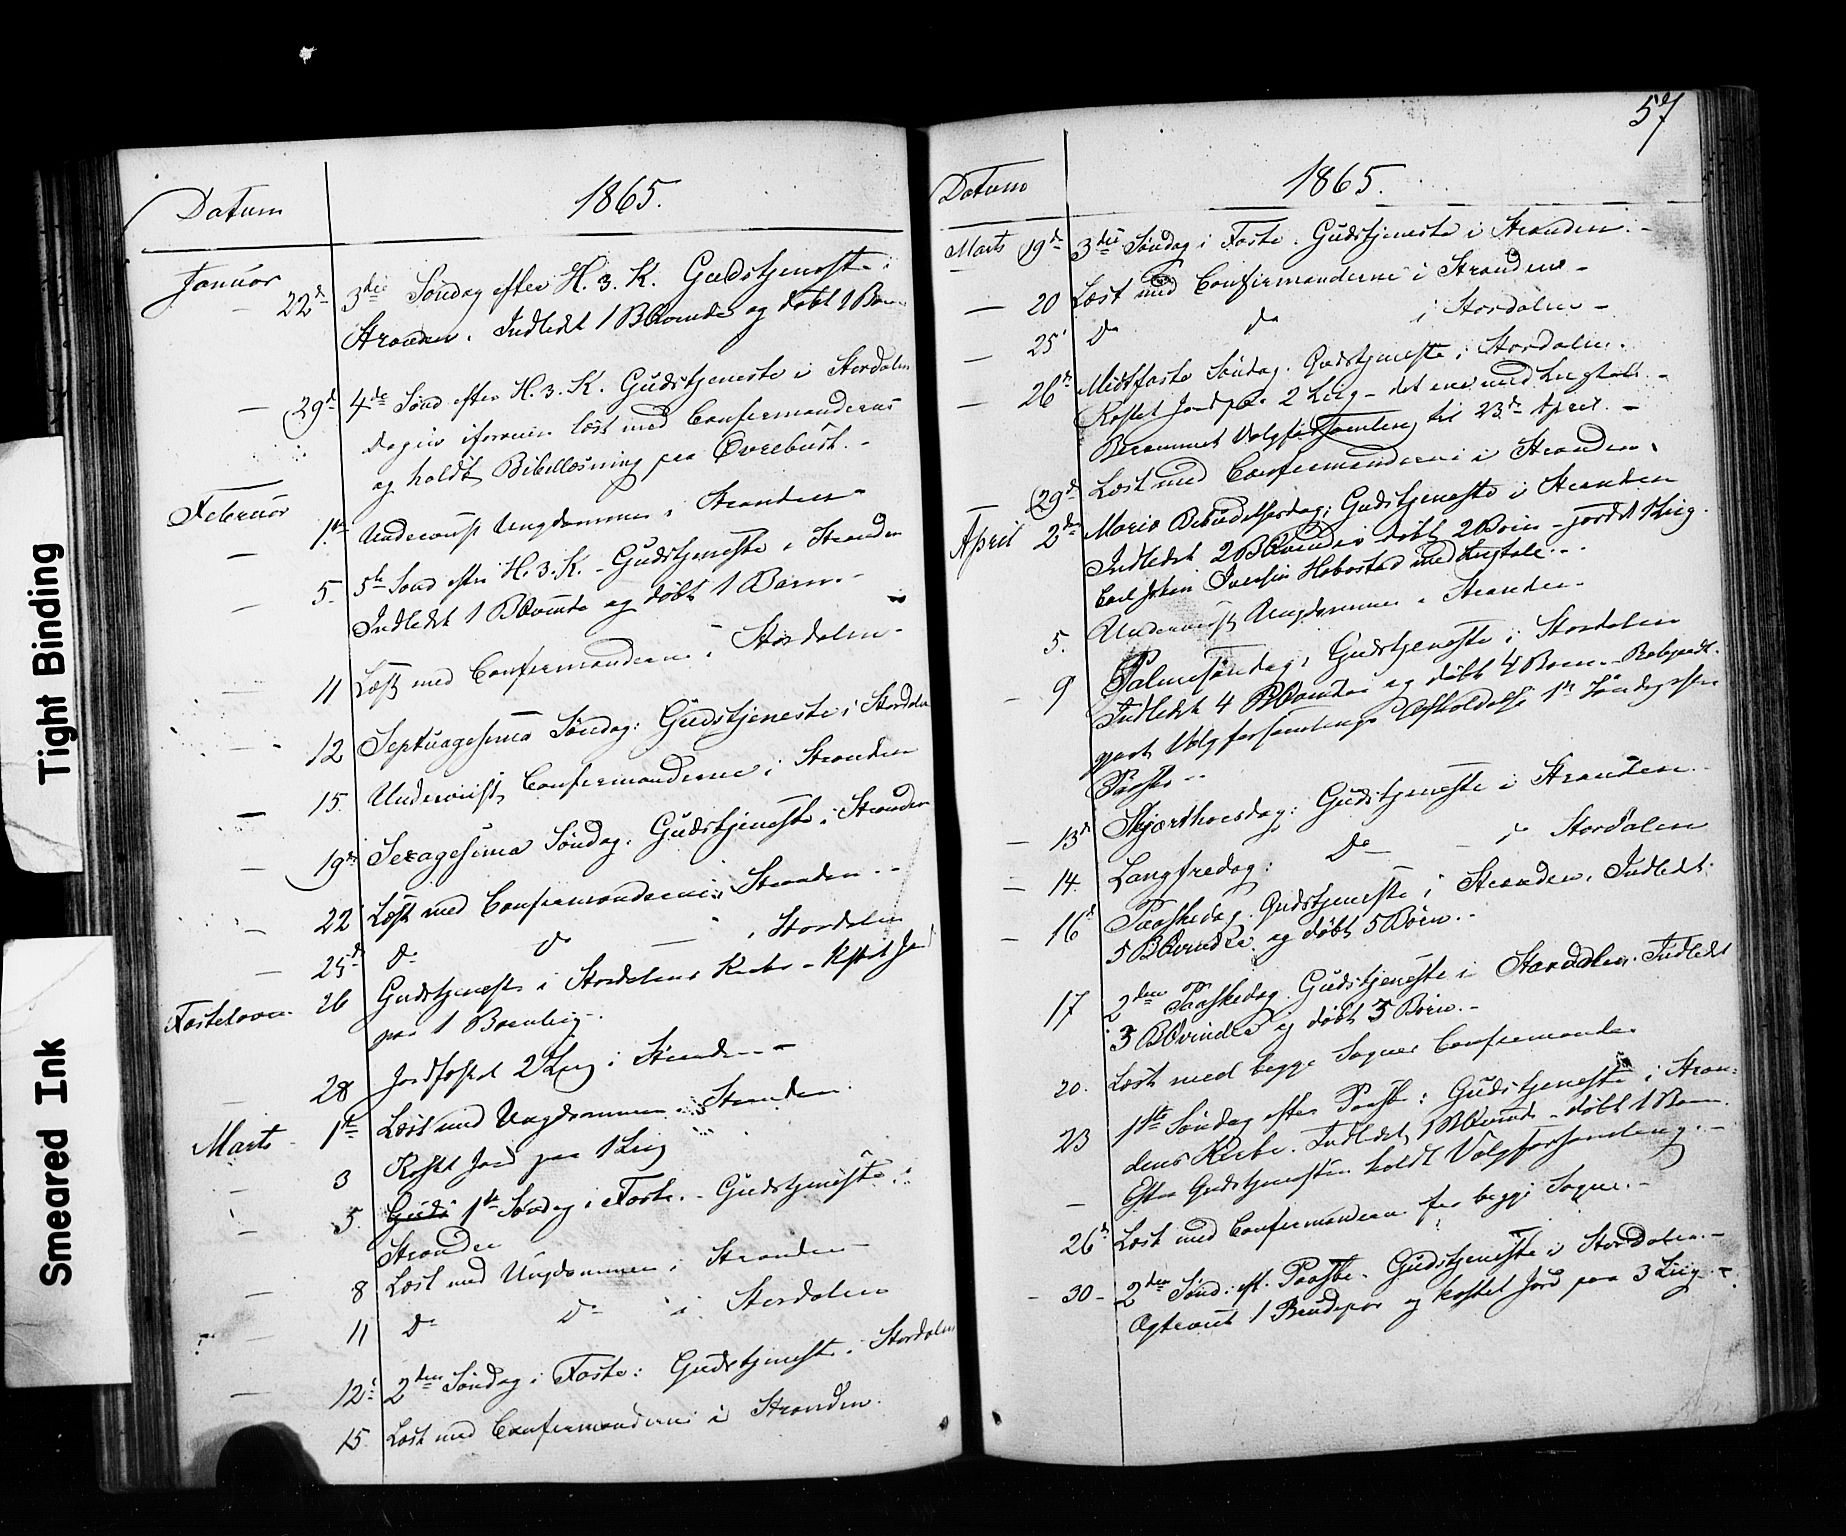 Datum 1865.
Januar
— 22de 3die Søndag efter H. 3. K. Gudstjeneste i
Stranden. Indledt 1 BKvinde og døbt 1 Barn
— 29de 4de Sønd efter H. 3. K. Gudstjeneste i Stordalen
Dagen iforveien læst med Confirmanderne
og holdt Bibellæsning paa Øvrebust. –
Februar 1ste Underviist Ungdommen i Stranden –
— 5. 5te Sønd efter H. 3. K. – Gudstjeneste i Stranden
Indledt 1 BKvinde og døbt 1 Barn. –
11 Læst med Confirmanderne i Stordalen –
— 12 Septuagesima Søndag: Gudstjeneste i Stordalen
— 15. Underviist Confirmanderne i Stranden
— 19de Sexagesima Søndag. Gudstjeneste i Stranden
— 22 Læst med Confirmanderne i Stranden. –
— 25de Do Do — i Stordalen
Fastelavn 26 Gudstjeneste i Stordalens Kirke – Kastet Jord
paa 1 Barnelig –
— 28 Jordfæstet 2 Lig i Stranden –
Marts – 1ste Læst med Ungdommen i Stranden.
— 3 Kastet Jord paa 1 Lig
— 5. Guds 1ste Søndag i Faste. – Gudstjeneste i
Stranden
8 Læst med Ungdommen i Stranden –
— 11 Do Do i Stordalen
— 12te 2den Søndag i Faste: Gudstjeneste i Stordalen
15. Læst med Confirmanderne i Stranden.
57
Datum 1865.
Marts 19de 3die Søndag i Faste. Gudstjeneste i Stranden. –
— 20 Læst med Confirmanderne i Stranden –
— 25 Do Do i Stordalen –
— 26de Midtfaste Søndag. Gudstjeneste i Stordalen.
Kastet Jord paa 2 Lig – det ene med Ligtale. –
Berammet Valgforsamling til 23de April. –
— 29de Læst med Confirmanderne i Stranden.
April 2den Mariæ Bebudelsesdag; Gudstjeneste i Stranden
Indledt 2 BKvinder døbt 2 Børn – jordet 1 Lig.
Carl Johan Iversen Hobostad med Ligtale. –
5. Underviist Ungdommen i Stranden –
— 9 Palmesøndag, Gudstjeneste i Stordalen
Indledt 4 BKvinder og døbt 4 Børn. – Bekjendt-
gjort Valgforsamlings Afholdelse 1ste Søndag efter
Paaske –
— 13de Skjærthorsdag: Gudstjeneste i Stranden. –
— 14. Langfredag: Do — i Stordalen
— 16de Paaskedag. Gudstjeneste i Stranden. Indledt
5 BKvinder og døbt 5 Børn. –
17 2den Paaskedag. Gudstjeneste i Stordalen. Indledt
3 BKvinder og døbt 3 Børn. –
20. Læst med begge Sognes Confirmander
23 1ste Søndag efter Paaske: Gudstjeneste i Stran-
dens Kirke. Indledt 1 BKvinde – døbt 1 Barn.
Efter Gudstjenesten holdt Valgforsamling. –
— 26de Læst med Confirmanderne for begge Sogne. –
— 30 – 2den Sønd. eft. Paaske. Gudstjeneste i Stordalen. –
Ægteviet 1 Brudepar og kastet Jord paa 3 Lig. –
Tight Binding
Smeared Ink